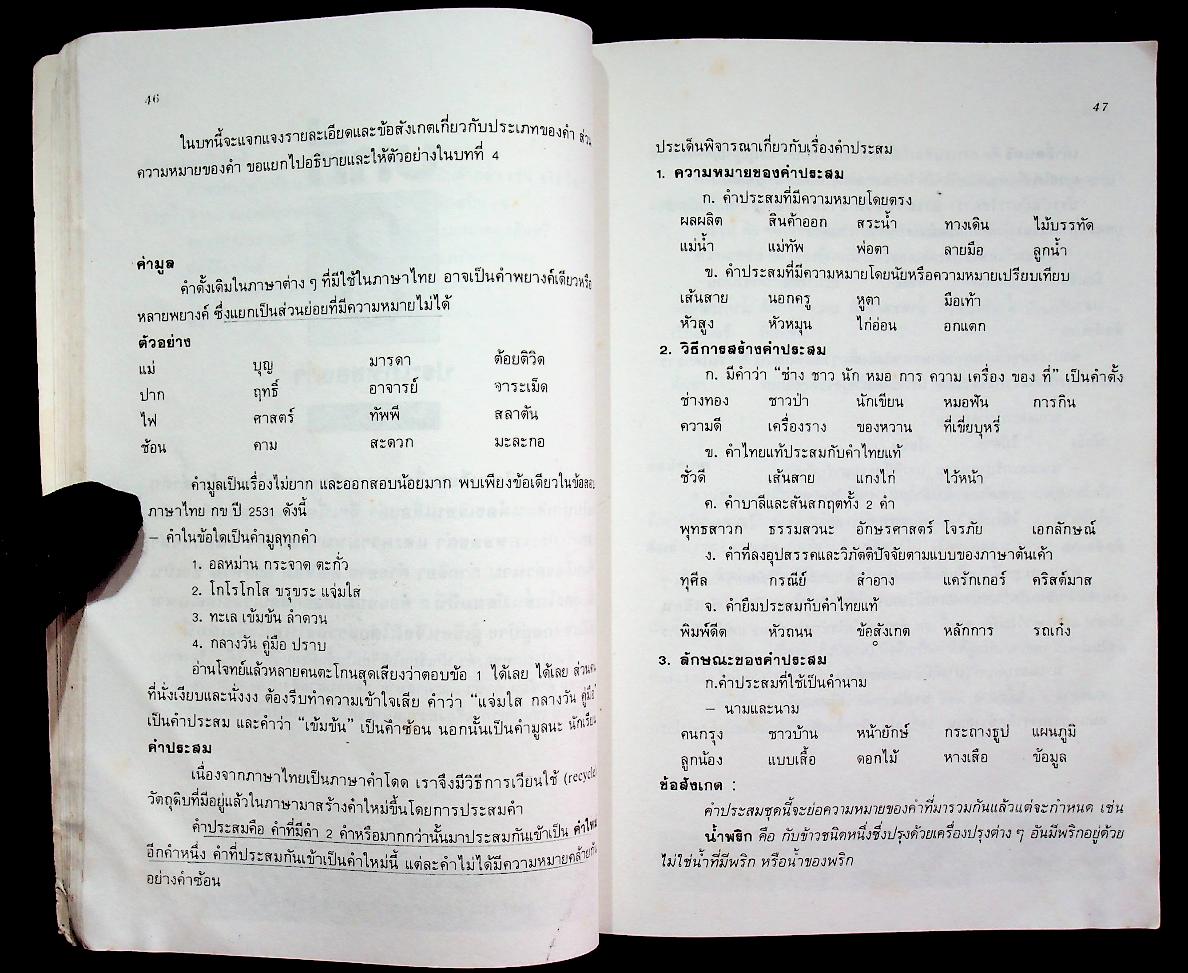 46
ในบทนี้จะแจกแจงรายละเอียดและข้อสังเกตเกี่ยวกับประเภทของคำ ส่วน
ความหมายของคำ ขอแยกไปอธิบายและให้ตัวอย่างในบทที่ 4
คำมูล
คำดั้งเดิมในภาษาต่าง ๆ ที่มีใช้ในภาษาไทย อาจเป็นคำพยางค์เดียวหรือ
หลายพยางค์ ซึ่งแยกเป็นส่วนย่อยที่มีความหมายไม่ได้
ตัวอย่าง
แม่ บุญ มารดา ต้อยติวิด
ปาก ฤทธิ์ อาจารย์ จาระเม็ด
ไฟ ศาสตร์ ทัพพี สลาตัน
ช้อน คาม สะดวก มะละกอ
คำมูลเป็นเรื่องไม่ยาก และออกสอบน้อยมาก พบเพียงข้อเดียวในข้อสอบ
ภาษาไทย กข ปี 2531 ดังนี้
– คำในข้อใดเป็นคำมูลทุกคำ
1. อลหม่าน กระจาด ตะกั่ว
2. โกโรโกโส ขรุขระ แจ่มใส
3. ทะเล เข้มข้น ลำดวน
4. กลางวัน คู่มือ ปราบ
อ่านโจทย์แล้วหลายคนตะโกนสุดเสียงว่าตอบข้อ 1 ได้เลย ได้เลย ส่วนคน
ที่นั่งเงียบและนั่งงง ต้องรีบทำความเข้าใจเสีย คำว่า “แจ่มใส กลางวัน คู่มือ”
เป็นคำประสม และคำว่า “เข้มข้น” เป็นคำซ้อน นอกนั้นเป็นคำมูลนะ นักเรียน
คำประสม
เนื่องจากภาษาไทยเป็นภาษาคำโดด เราจึงมีวิธีการเวียนใช้ (recycle)
วัตถุดิบที่มีอยู่แล้วในภาษามาสร้างคำใหม่ขึ้นโดยการประสมคำ
คำประสมคือ คำที่มีคำ 2 คำหรือมากกว่านั้นมาประสมกันเข้าเป็น คำใหม่
อีกคำหนึ่ง คำที่ประสมกันเข้าเป็นคำใหม่นี้ แต่ละคำไม่ได้มีความหมายคล้ายกัน
อย่างคำซ้อน
47
ประเด็นพิจารณาเกี่ยวกับเรื่องคำประสม
1. ความหมายของคำประสม
ก. คำประสมที่มีความหมายโดยตรง
ผลผลิต สินค้าออก สระน้ำ ทางเดิน ไม้บรรทัด
แม่น้ำ แม่ทัพ พ่อตา ลายมือ ลูกน้ำ
ข. คำประสมที่มีความหมายโดยนัยหรือความหมายเปรียบเทียบ
เส้นสาย นอกครู หูตา มือเท้า
หัวสูง หัวหมุน ไก่อ่อน อกแตก
2. วิธีการสร้างคำประสม
ก. มีคำว่า “ช่าง ชาว นัก หมอ การ ความ เครื่อง ของ ที่” เป็นคำตั้ง
ช่างทอง ชาวป่า นักเขียน หมอฟัน การกิน
ความดี เครื่องราง ของหวาน ที่เขี่ยบุหรี่
ข. คำไทยแท้ประสมกับคำไทยแท้
ชั่วดี เส้นสาย แกงไก่ ไว้หน้า
ค. คำบาลีและสันสกฤตทั้ง 2 คำ
พุทธสาวก ธรรมสวนะ อักษรศาสตร์ โจรภัย เอกลักษณ์
ง. คำที่ลงอุปสรรคและวิภัตติปัจจัยตามแบบของภาษาต้นเค้า
ทุศีล กรณีย์ สำอาง แครักเกอร์ คริสต์มาส
จ. คำยืมประสมกับคำไทยแท้
พิมพ์ดีด หัวถนน ข้อสังเกต หลักการ รถเก๋ง
3. ลักษณะของคำประสม
ก.คำประสมที่ใช้เป็นคำนาม
– นามและนาม
คนกรุง ชาวบ้าน หน้ายักษ์ กระถางธูป แผนภูมิ
ลูกน้อง แบบเสื้อ ดอกไม้ หางเสือ ข้อมูล
ข้อสังเกต :
คำประสมชุดนี้จะย่อความหมายของคำที่มารวมกันแล้วแต่จะกำหนด เช่น
น้ำพริก คือ กับข้าวชนิดหนึ่งซึ่งปรุงด้วยเครื่องปรุงต่าง ๆ อันมีพริกอยู่ด้วย
ไม่ใช่น้ำที่มีพริก หรือน้ำของพริก